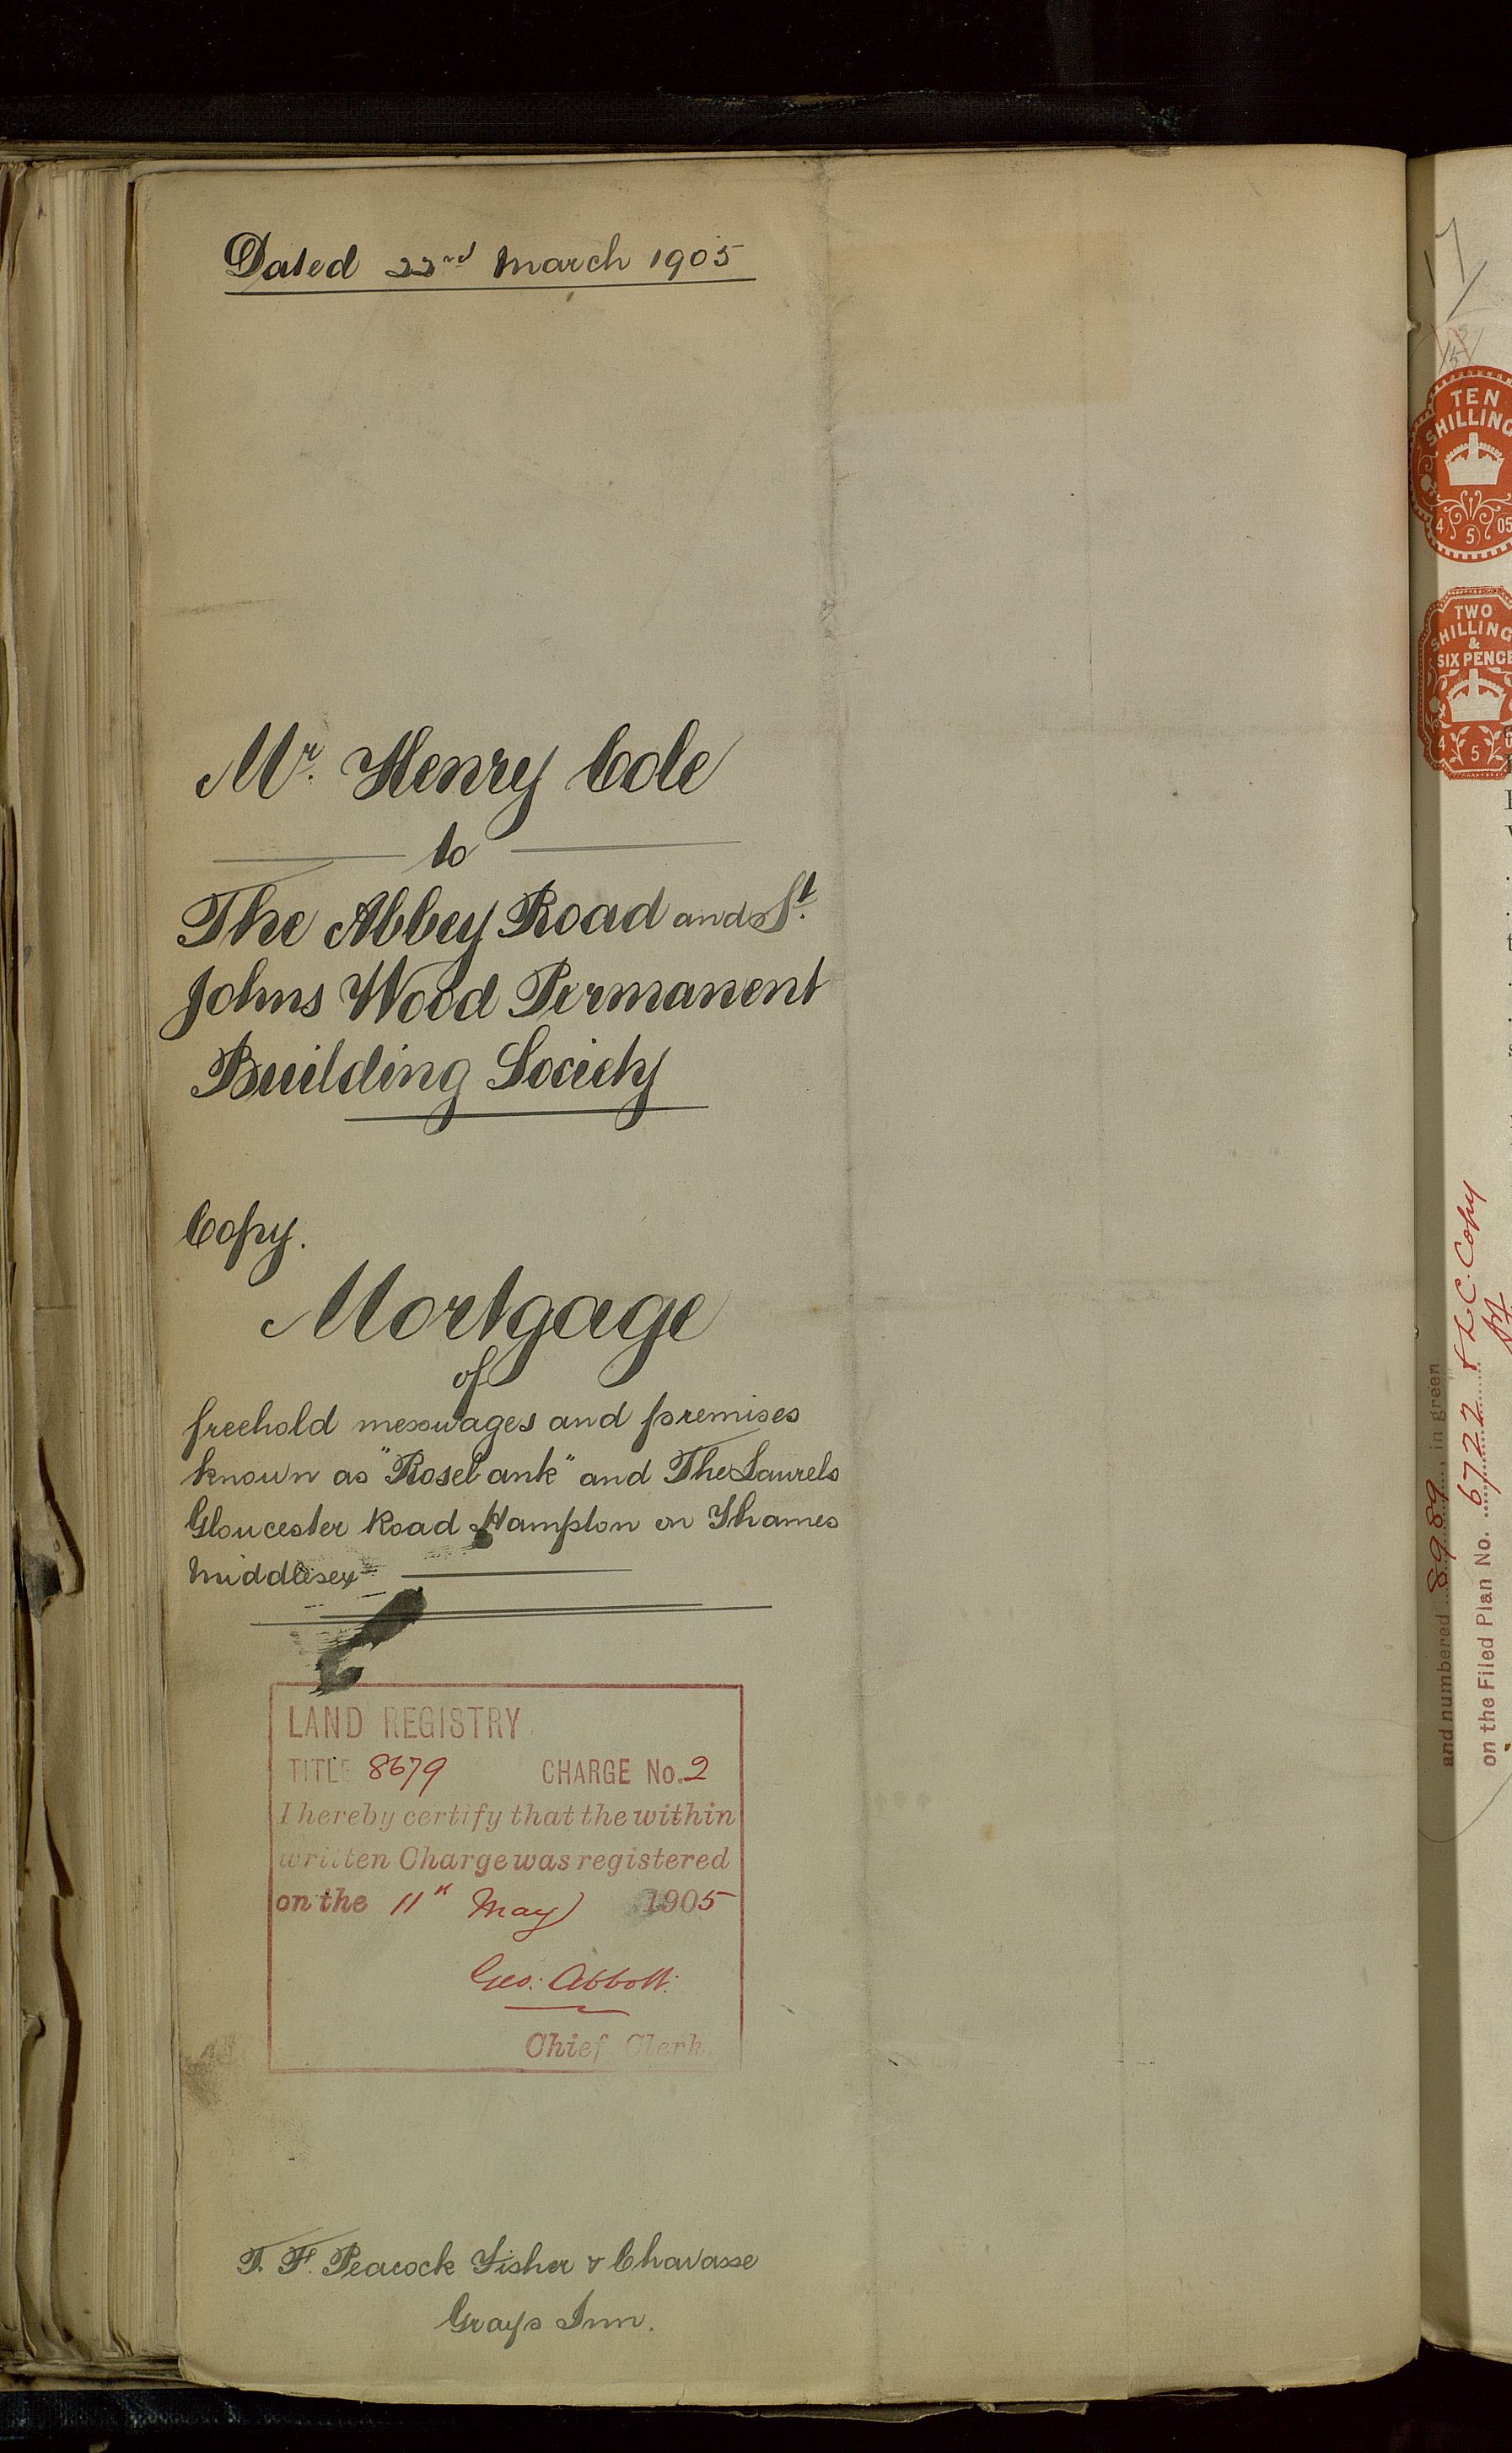 Dated 22nd March 1905
Mr. Henry Cole
to
The Abbey Road and St.
Johns Wood Permanent
Building Society
Copy.
Mortgage
of
freehold messuages and premises
known as "Rosebank" and The Laurels
Gloucester Road Hampton on Thames
Middlesex
LAND REGISTRY
TITLE 8679 CHARGE No. 2
I hereby certify that the within
written Charge was registered
on the 11th May 1905
Geo. Abbott.
Chief Clerk
T. F. Peacock Fisher & Chavasse
Grays Inn.
TEN
SHILLING
4 5 05
TWO
SHILLING
&
SIX PENCE
4 5
and numbered 8989 in green
on the Filed Plan No. 6722 & L.C. Copy